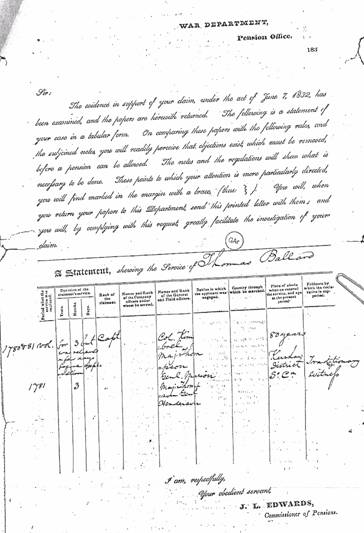 WAR DEPARTMENT,
Pension Office.
183
Sir:
The evidence in support of your claim, under the act of June 7, 1832, has
been examined, and the papers are herewith returned. The following is a statement of
your case in a tabular form. On comparing these papers with the following rules, and
the subjoined notes, you will readily perceive that objections exist, which must be removed,
before a pension can be allowed. The notes and the regulations will shew what is
necessary to be done. Those points to which your attention is more particularly directed,
you will find marked in the margin with a brace, (thus }). You will, when
you return your papers to this Department, send this printed letter with them; and
you will, by complying with this request, greatly facilitate the investigation of your
claim.
A Statement, shewing the Service of Thomas Ballard
Period when the
Duration of the claimant's service.
Years. Months. Days.
Rank of the claimant.
Names and Rank of the Company officers under whom he served.
Names and Rank of the General and Field officers.
Battles in which the applicant was engaged.
Country through which he marched.
Place of abode when he entered the service, and age at the present period.
Evidence by which the declaration is supported.
1780 & 81 vol. for 3 Capt
Col. Kim
Major
Genl Marion
80 years
Kershaw
District
So Ca
Traditionary
Witness
1781 3
Major
under Genl
Henderson
I am, respectfully,
Your obedient servant,
J. L. EDWARDS,
Commissioner of Pensions.